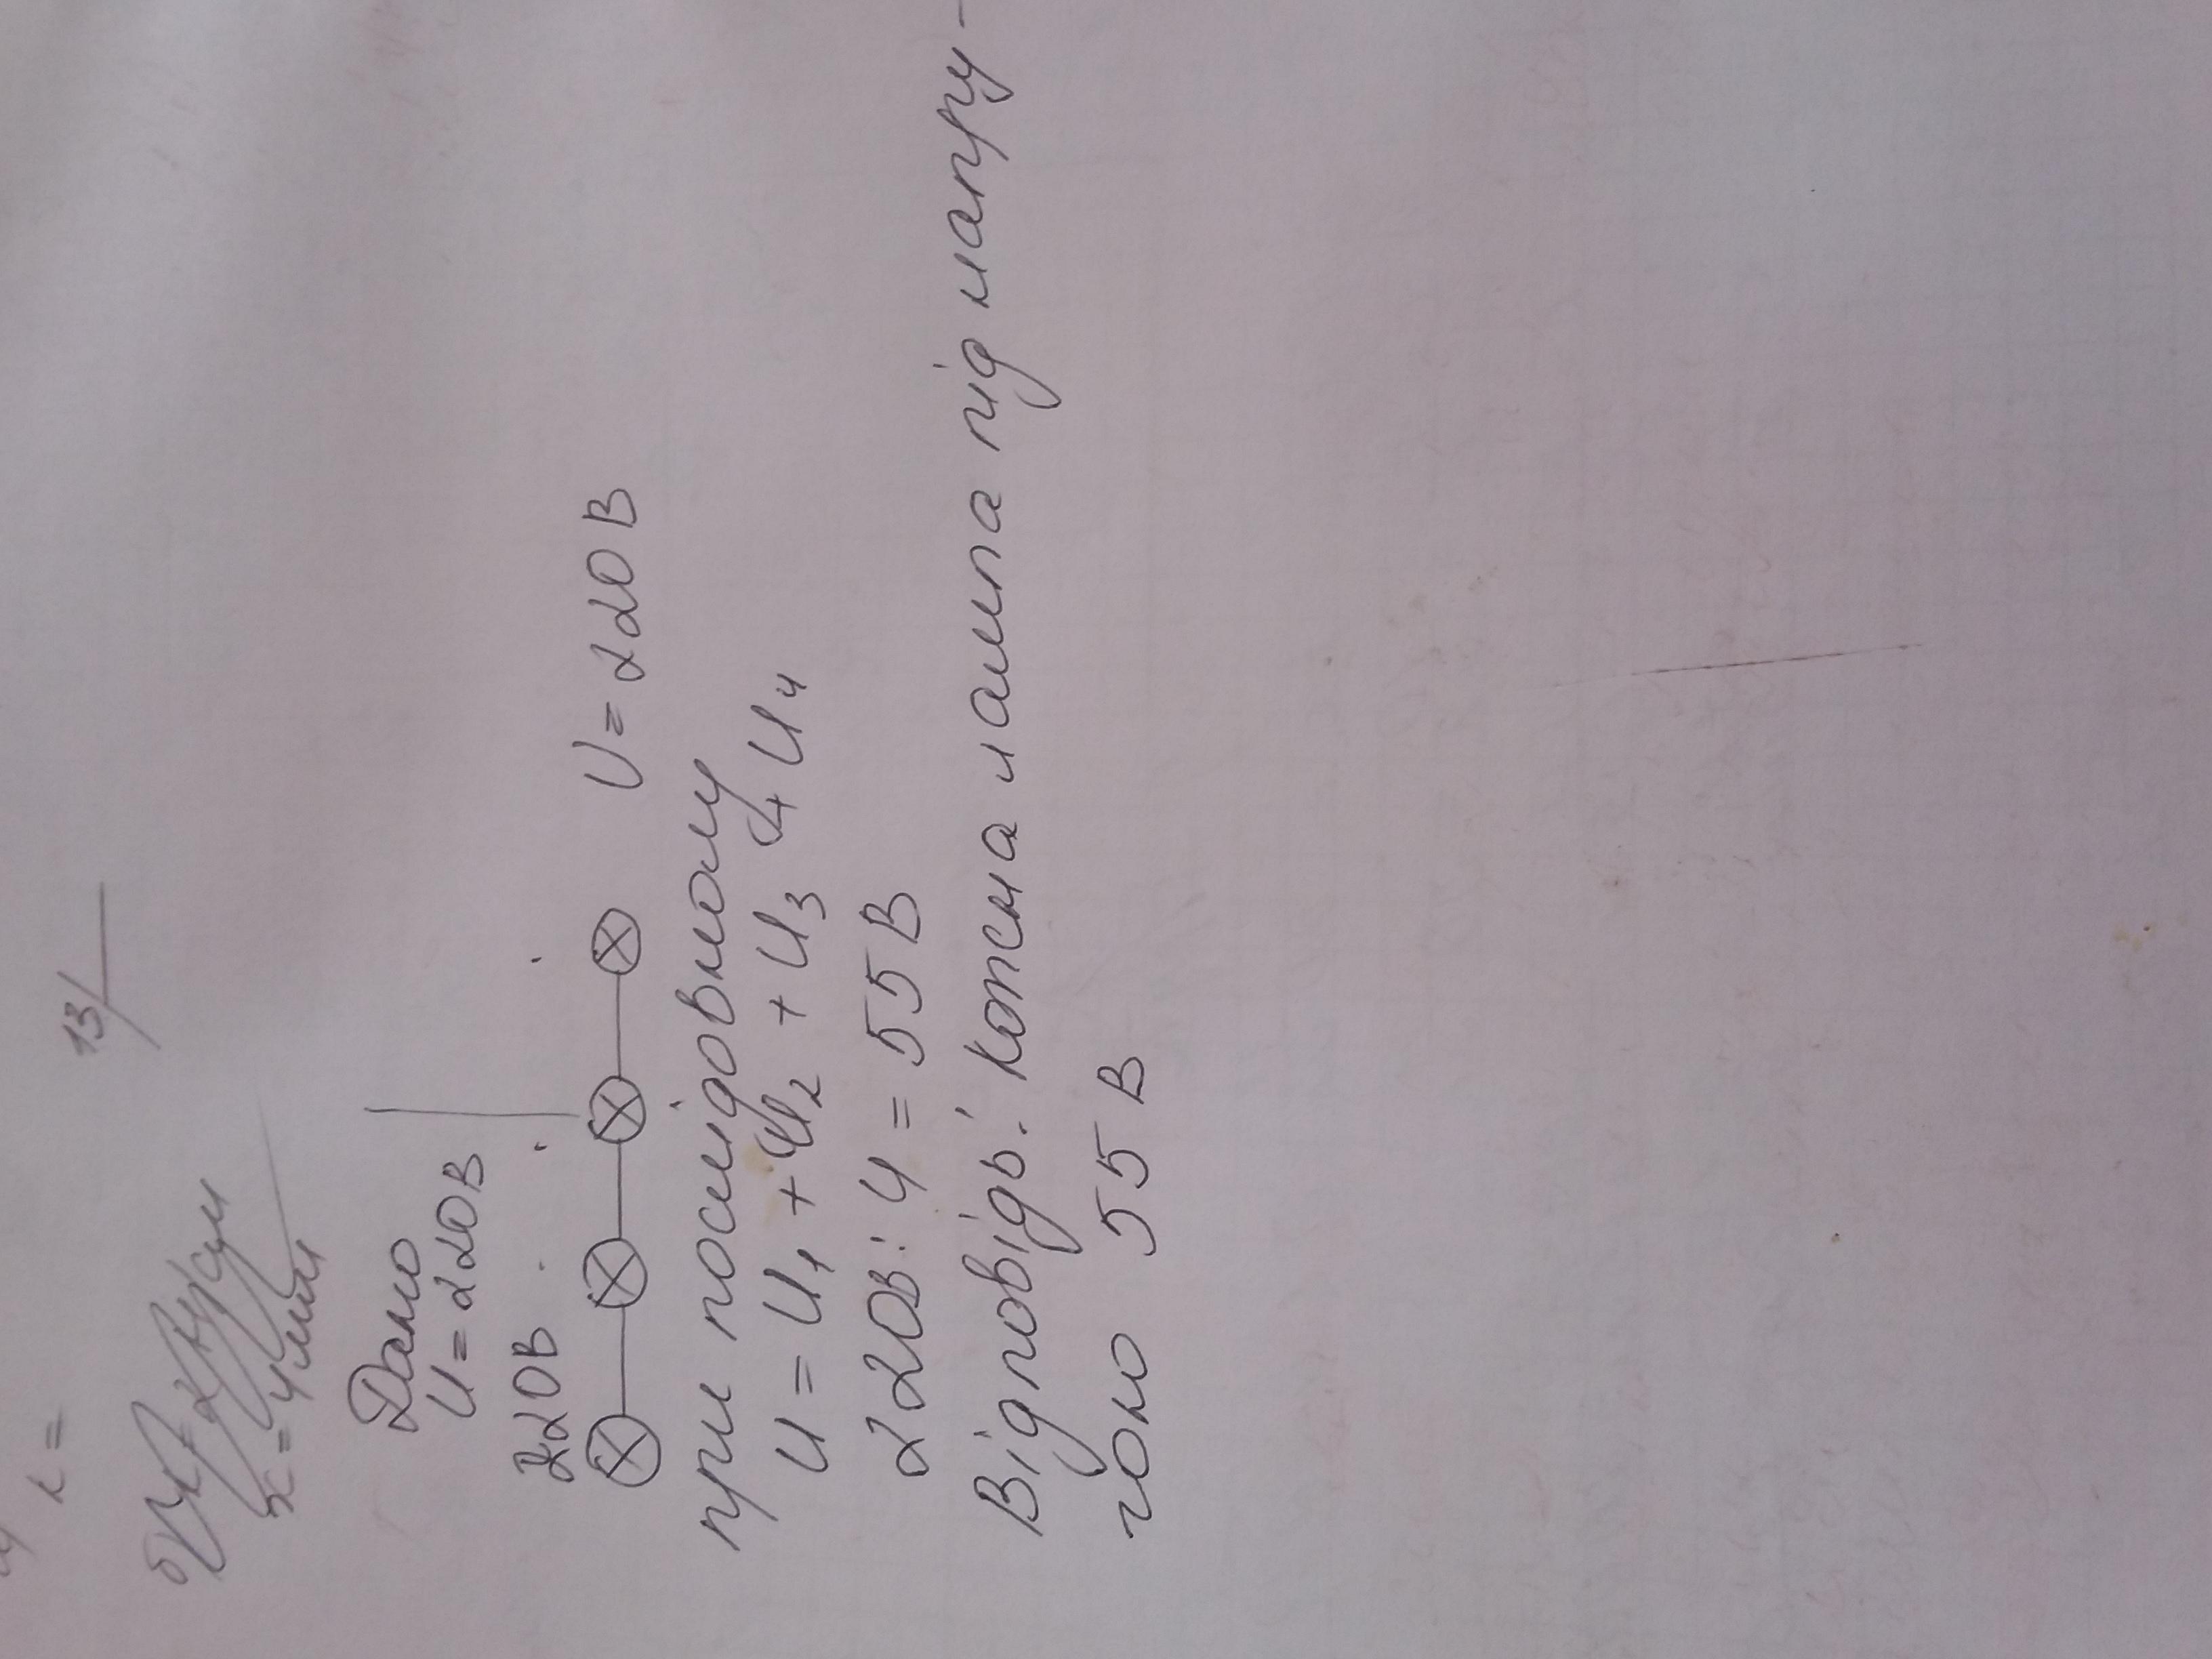 13
Дано
U = 220В
220В
U = 220В
при послідовному
U = U₁ + U₂ + U₃ + U₄
220В : 4 = 55В
Відповідь: Кожна лампа під напру-
гою 55 В